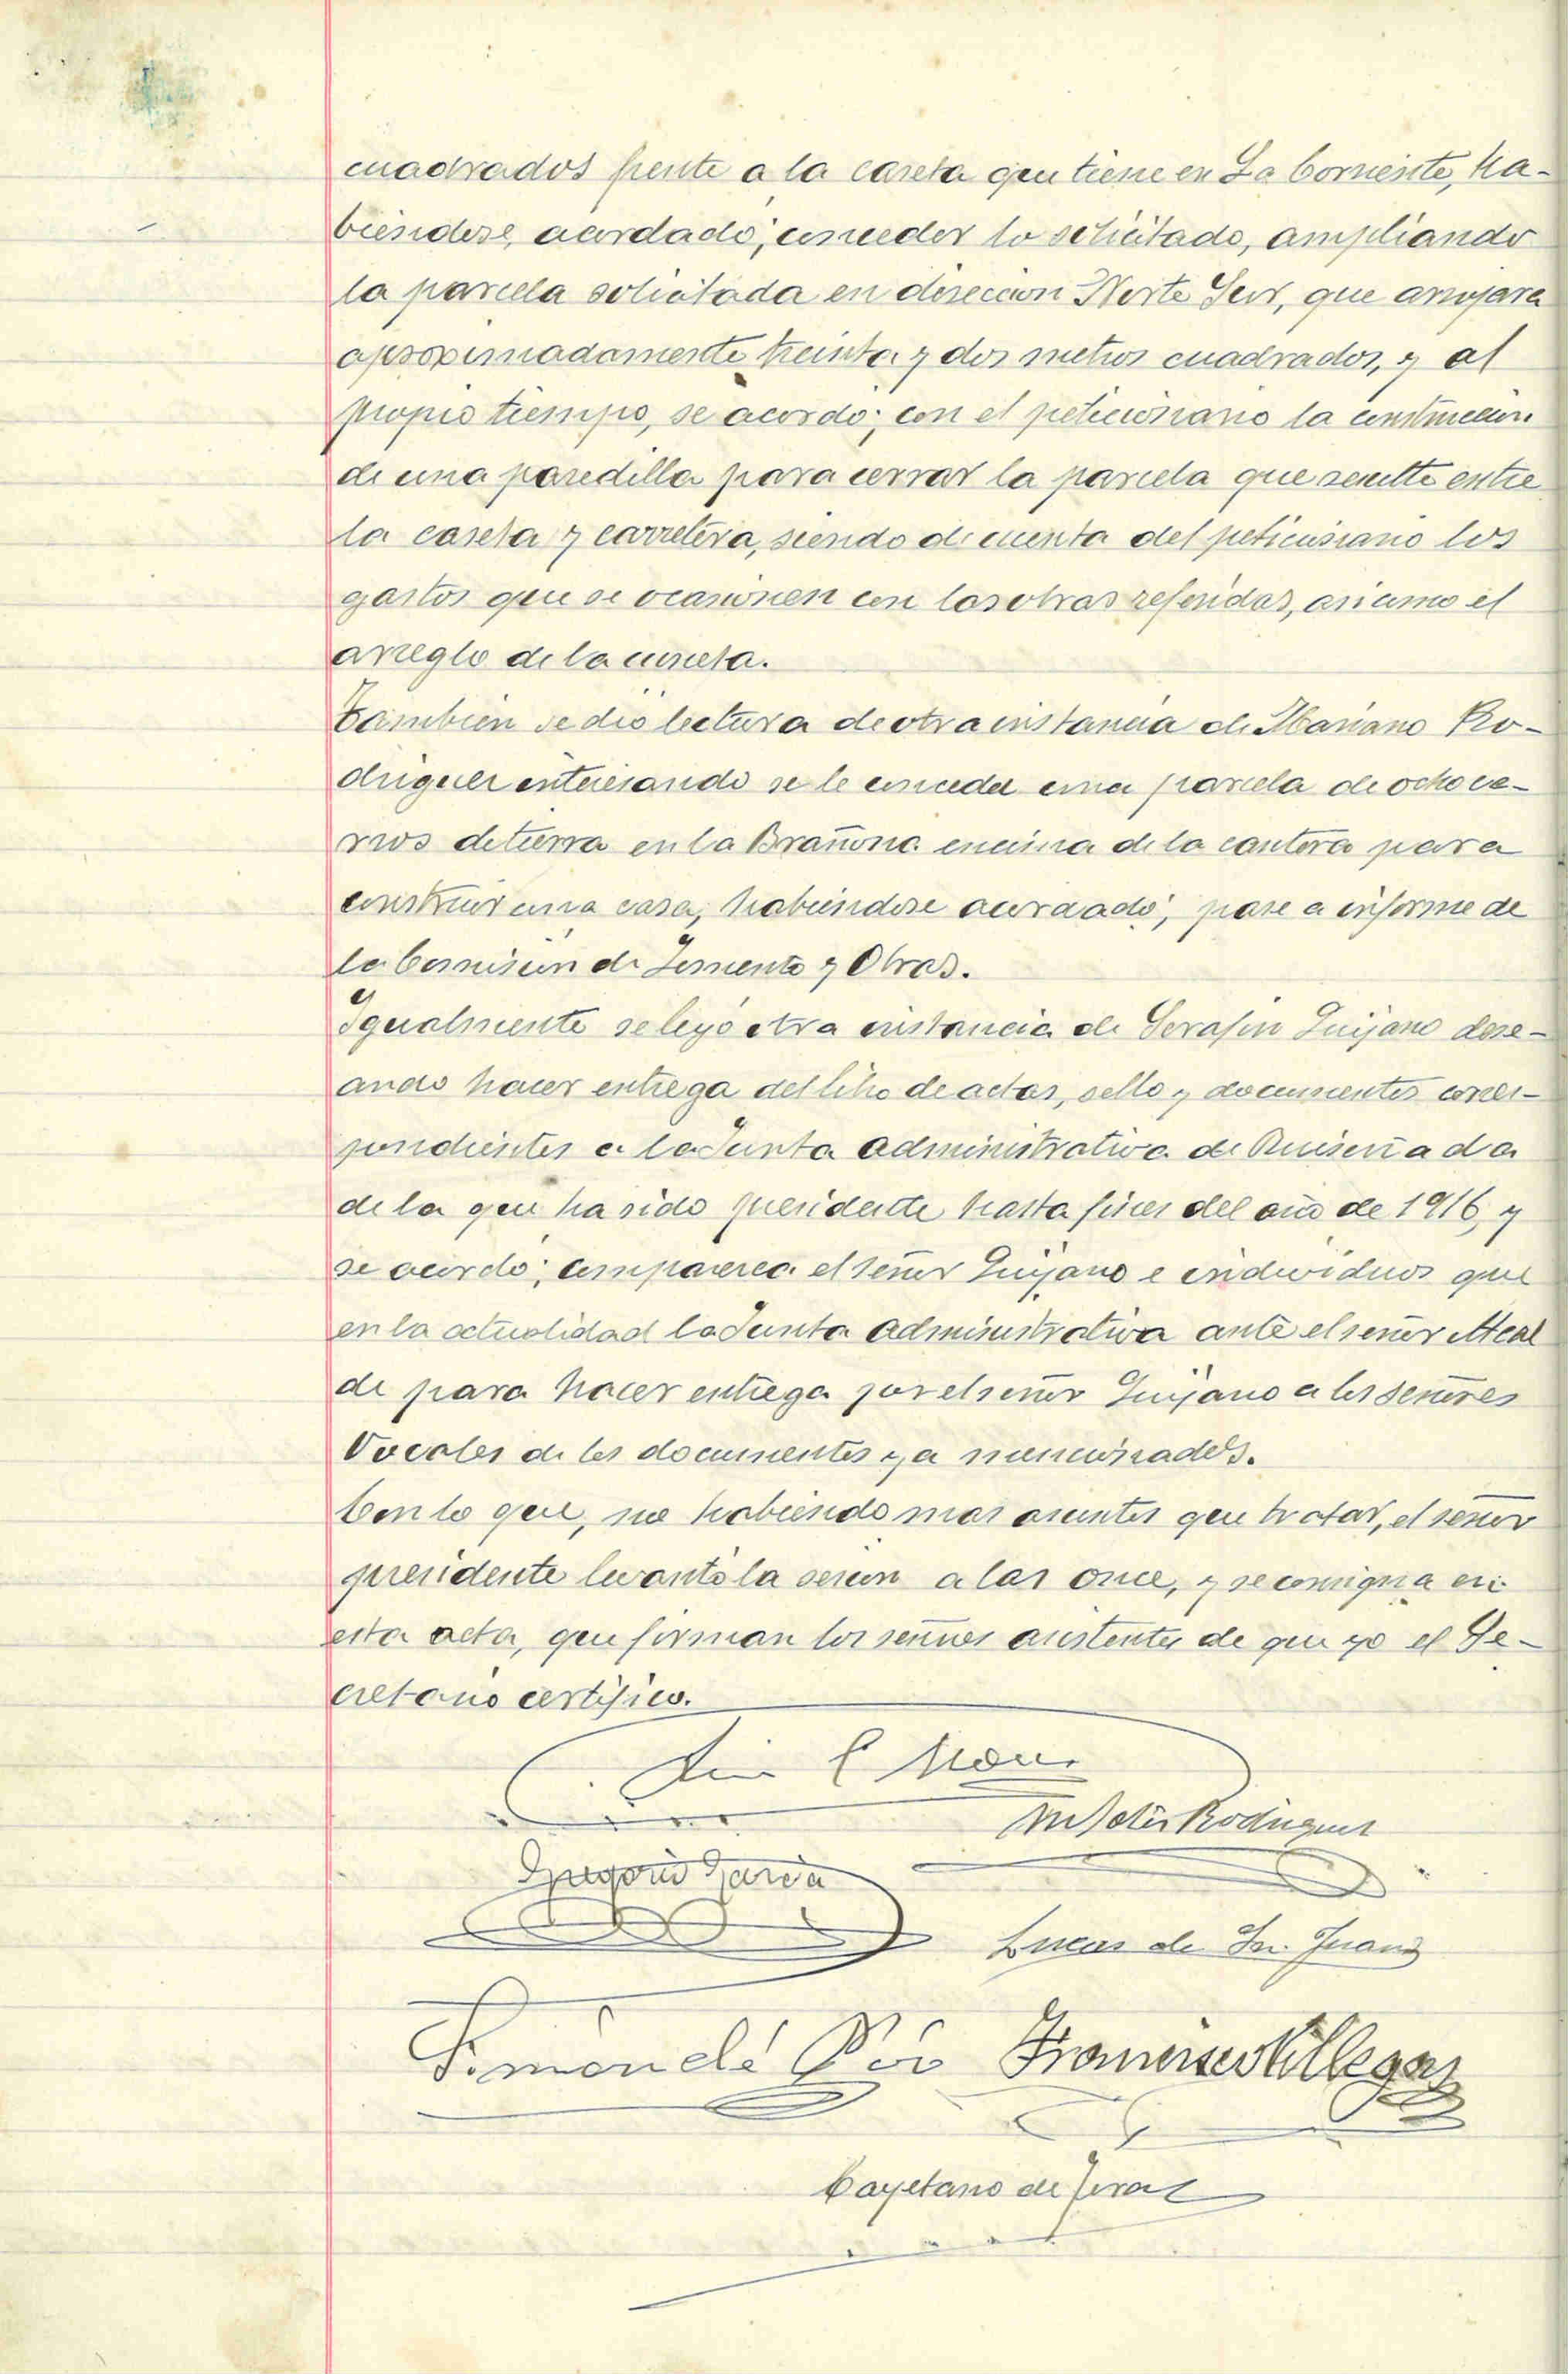 cuadrados frente a la caseta que tiene en La Corriente, ha-
biendose, acordado; conceder lo solicitado, ampliando
la parcela solicitada en direccion Norte Sur, que arrojara
aproximadamente treinta y dos metros cuadrados, y al
propio tiempo, se acordó; con el peticionario la construccion
de una paredilla para cerrar la parcela que resulte entre
la caseta y carretera, siendo de cuenta del peticionario los
gastos que se ocasionen con las obras referidas, asi como el
arreglo de la cuneta.
Tambien se dió lectura de otra instancia de Mariano Ro-
driguez interesando se le conceda una parcela de ocho ca-
rros de tierra en la Brañona encima de la cantera para
construir una casa, habiendose acordado; pase a informe de
la Comisión de Fomento y Obras.
Igualmente se leyó otra instancia de Serafin Quijano dese-
ando hacer entrega del libro de actas, sello y documentos corres-
pondientes a la Junta administrativa de Ruiseñada
de la que ha sido presidente hasta fines del año de 1916, y
se acordó; comparezca el señor Quijano e individuos que
en la actualidad la Junta administrativa ante el señor Alcal
de para hacer entrega por el señor Quijano a los señores
Vocales de los documentos ya mencionados.
Con lo que, no habiendo mas asuntos que tratar, el señor
presidente levantó la sesion a las once, y se consigna en
esta acta, que firman los señores asistentes de que yo el Se-
cretario certifico.
Rodriguez
Gregorio Garcia
Lucas de Sn. Juan
Simon de
Francisco Villegas
Cayetano de